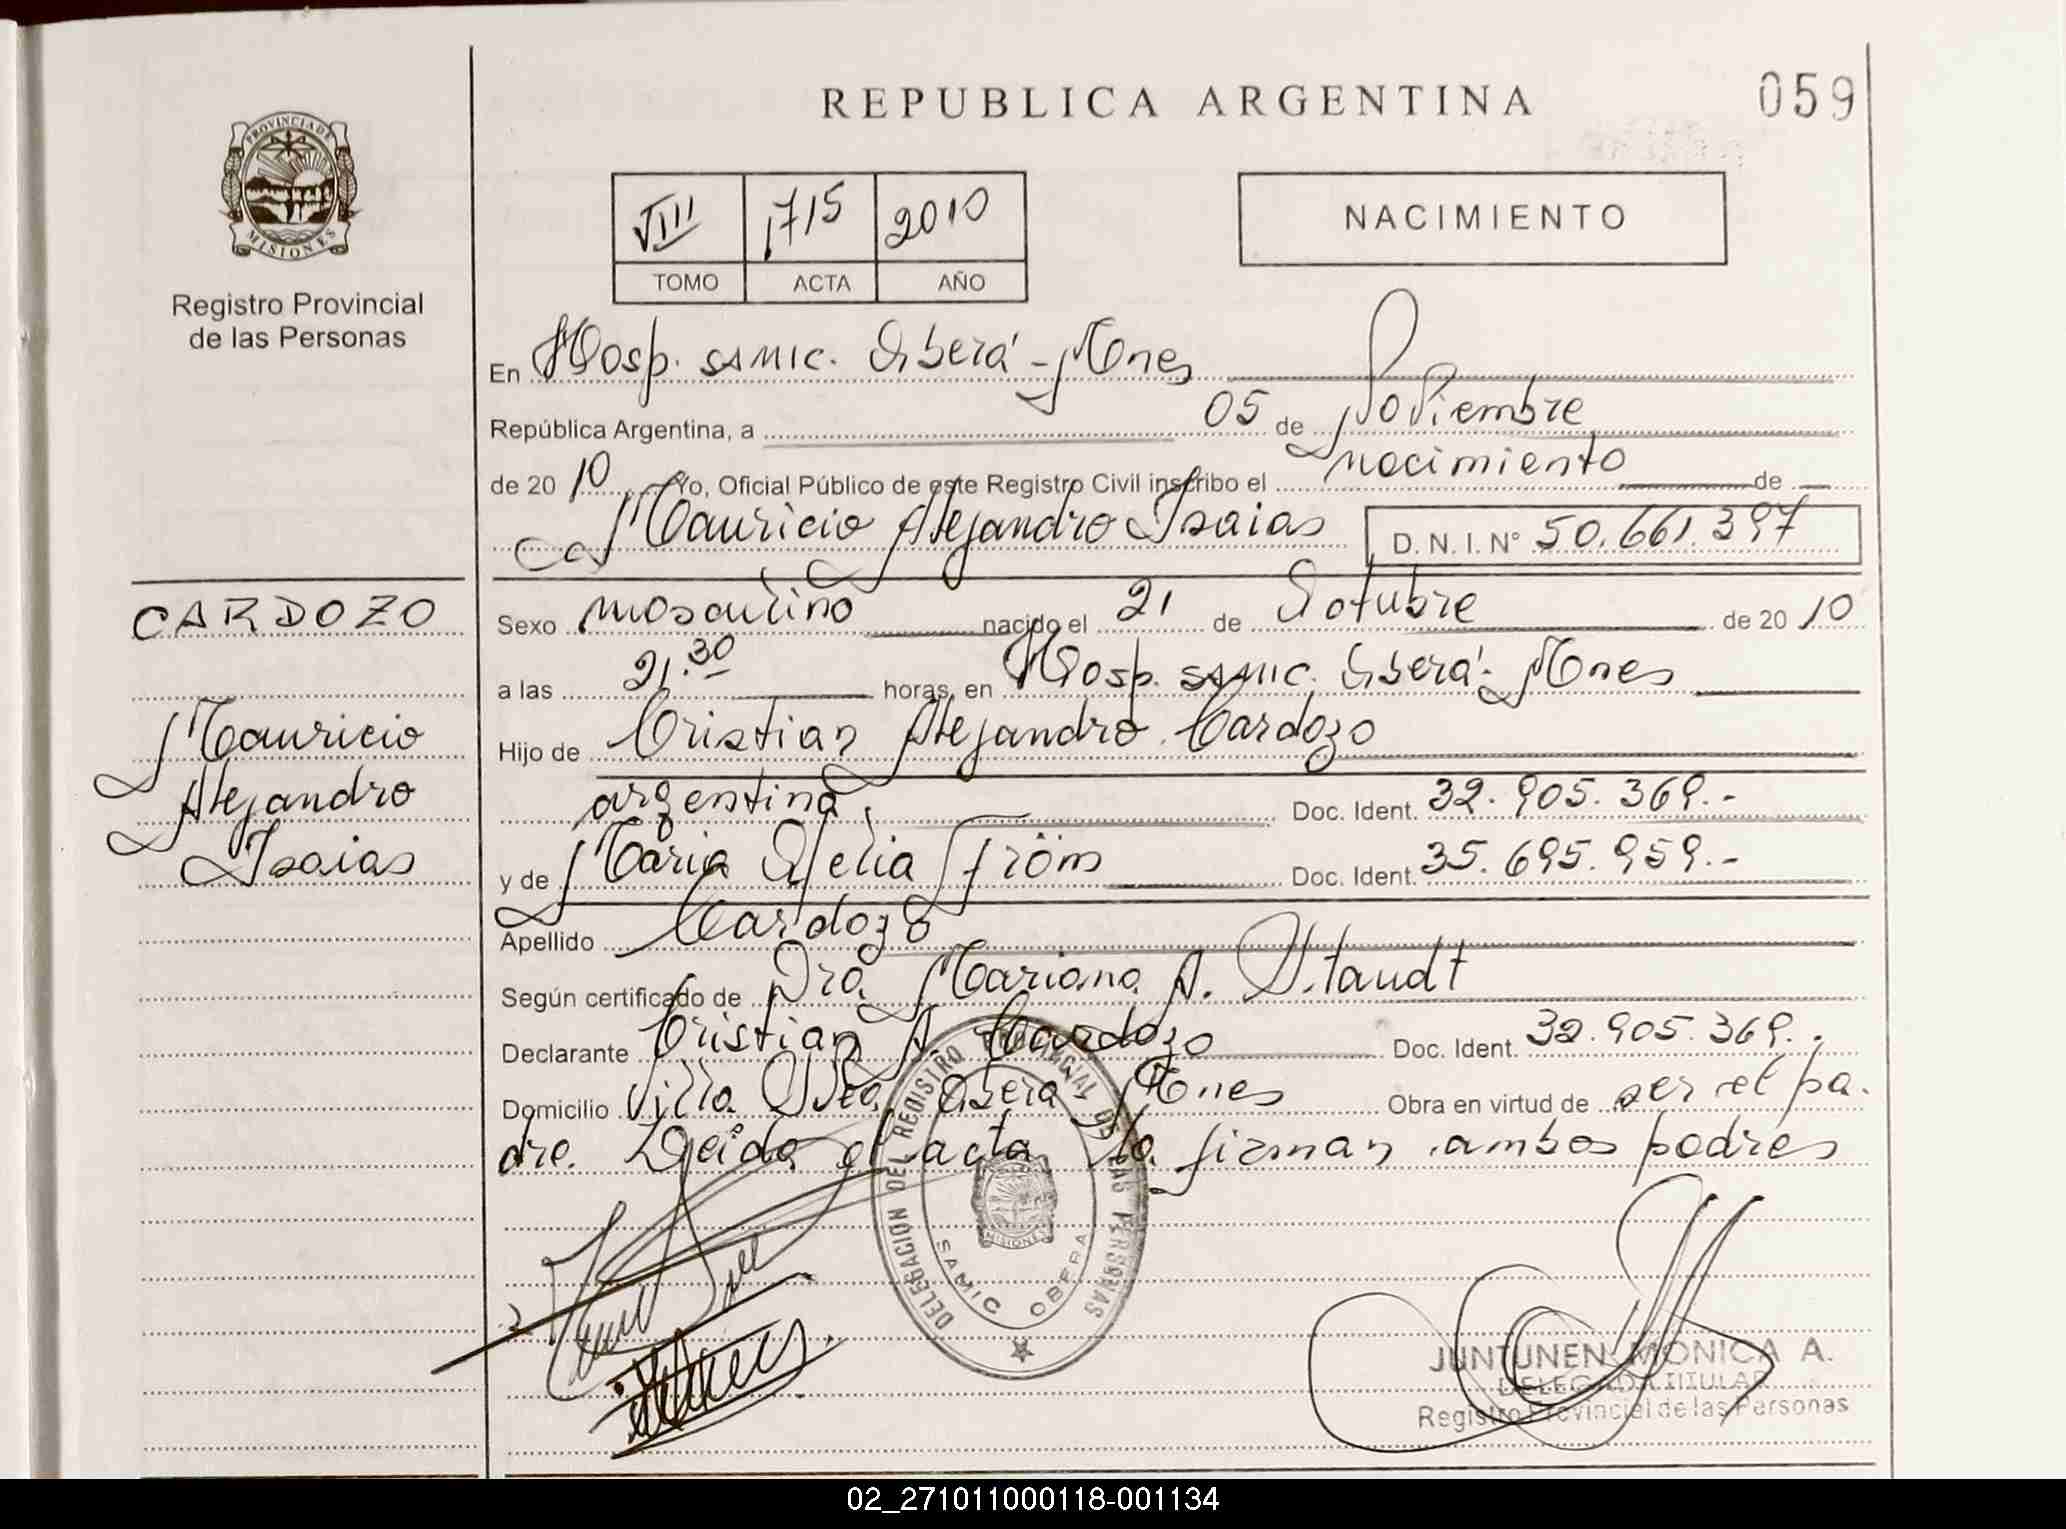 REPUBLICA ARGENTINA
059
PROVINCIA DE
MISIONES
Registro Provincial
de las Personas
VIII 1715 2010
TOMO ACTA AÑO
NACIMIENTO
En Hosp. SAMIC. Oberá - Mnes
República Argentina, a 05 de Noviembre
de 20 10 Yo, Oficial Público de este Registro Civil inscribo el nacimiento de
Mauricio Alejandro Isaias D. N. I. N° 50.661.397
CARDOZO
Mauricio
Alejandro
Isaias
Sexo masculino nacido el 21 de Octubre de 20 10
a las 21.30 horas, en Hosp. SAMIC. Oberá - Mnes
Hijo de Cristian Alejandro Cardozo
argentina, Doc. Ident. 32.905.369.-
y de Maria Ofelia Fröm Doc. Ident. 35.695.959.-
Apellido Cardozo
Según certificado de Dra. Mariana A. Staudt
Declarante Cristian A. Cardozo Doc. Ident. 32.905.369.-
Domicilio Villa Bca. Oberá Mnes Obra en virtud de ser el pa.
dre. Leida el acta la firman ambos padres
DELEGACION DEL REGISTRO PROVINCIAL DE LAS PERSONAS
MISIONES
SAMIC OBERA
JUNTUNEN MONICA A.
DELEGADA TITULAR
Registro Provincial de las Personas
02_271011000118-001134